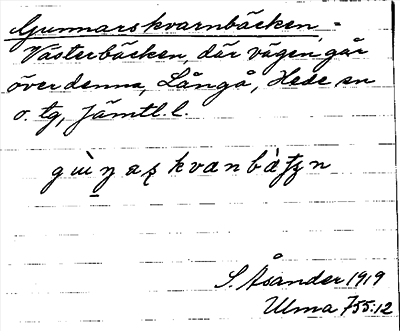 Gunnarskvarnbäcken =
Västerbäcken, där vägen går
över denna, Långå, Hede sn
o. tg, Jämtl. l.
S. Åsander 1919
Ulma 755:12